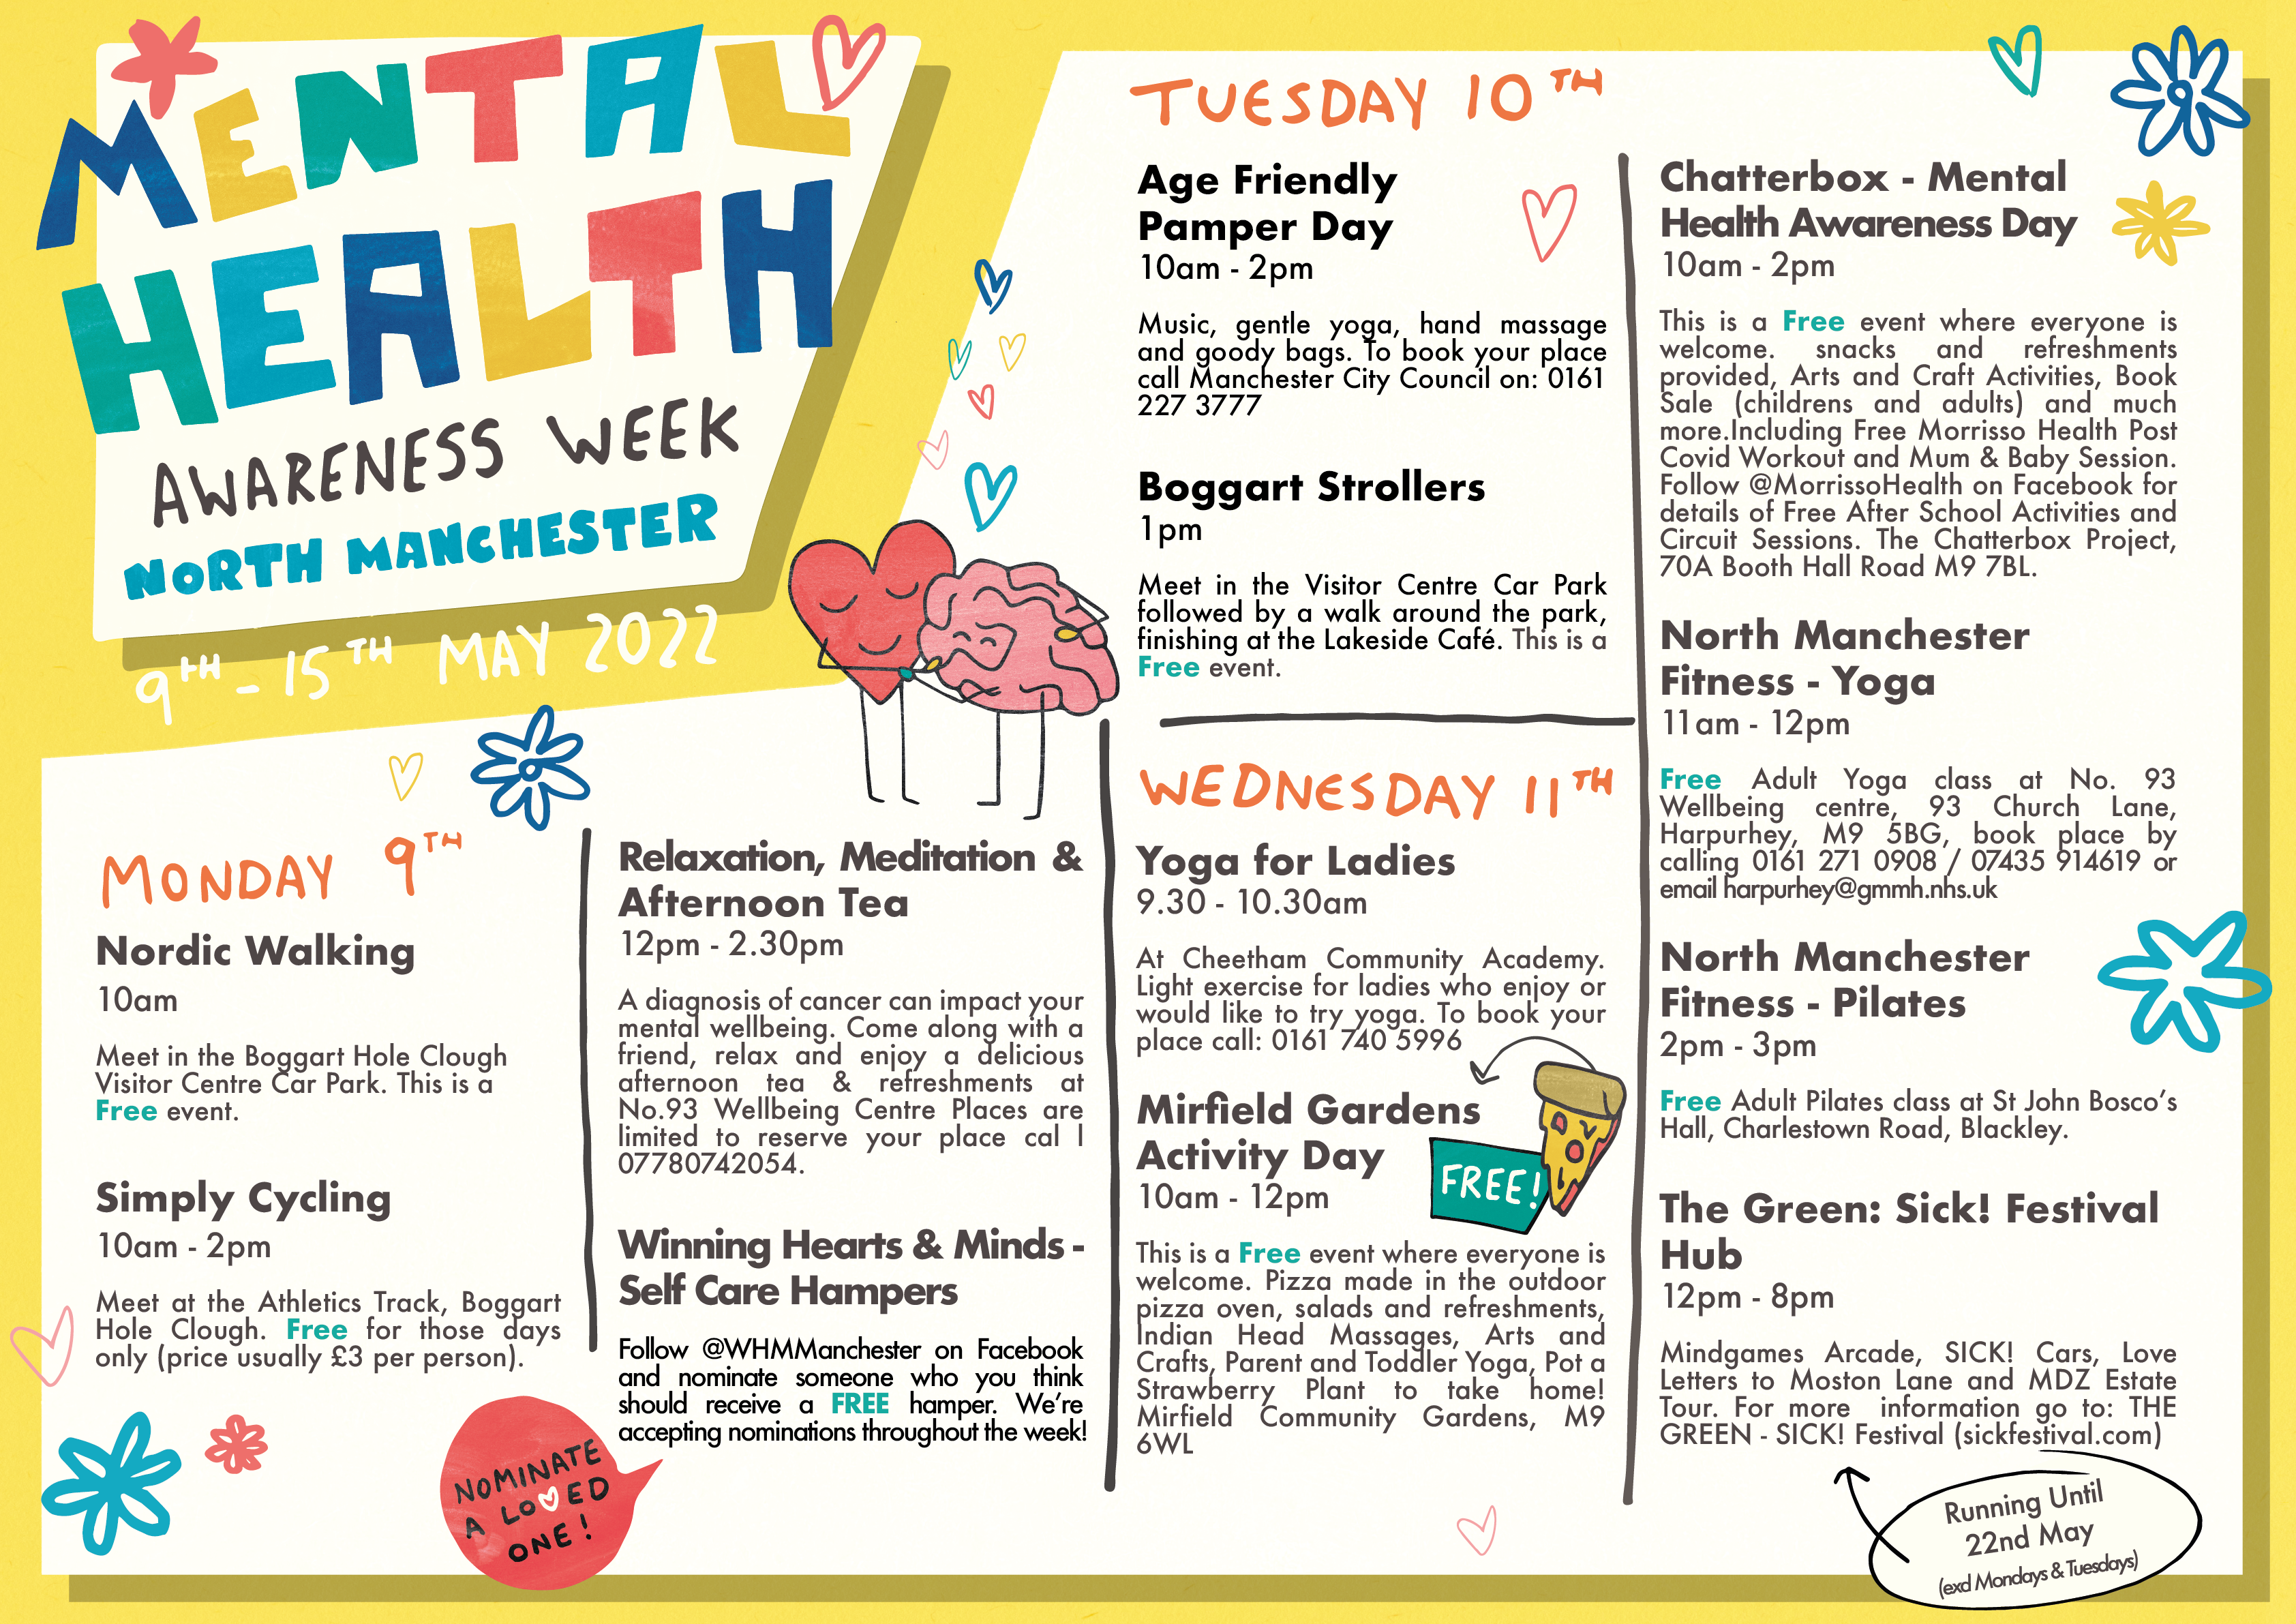 MENTAL
HEALTH
AWARENESS WEEK
NORTH MANCHESTER
9TH - 15TH MAY 2022
MONDAY 9TH
Nordic Walking
10am
Meet in the Boggart Hole Clough
Visitor Centre Car Park. This is a
Free event.
Simply Cycling
10am - 2pm
Meet at the Athletics Track, Boggart
Hole Clough. Free for those days
only (price usually £3 per person).
Relaxation, Meditation &
Afternoon Tea
12pm - 2.30pm
A diagnosis of cancer can impact your
mental wellbeing. Come along with a
friend, relax and enjoy a delicious
afternoon tea & refreshments at
No.93 Wellbeing Centre Places are
limited to reserve your place cal l
07780742054.
Winning Hearts & Minds -
Self Care Hampers
Follow @WHMManchester on Facebook
and nominate someone who you think
should receive a FREE hamper. We're
accepting nominations throughout the week!
NOMINATE
A LOVED
ONE!
TUESDAY 10TH
Age Friendly
Pamper Day
10am - 2pm
Music, gentle yoga, hand massage
and goody bags. To book your place
call Manchester City Council on: 0161
227 3777
Boggart Strollers
1pm
Meet in the Visitor Centre Car Park
followed by a walk around the park,
finishing at the Lakeside Café. This is a
Free event.
WEDNESDAY 11TH
Yoga for Ladies
9.30 - 10.30am
At Cheetham Community Academy.
Light exercise for ladies who enjoy or
would like to try yoga. To book your
place call: 0161 740 5996
Mirfield Gardens
Activity Day
10am - 12pm
FREE!
This is a Free event where everyone is
welcome. Pizza made in the outdoor
pizza oven, salads and refreshments,
Indian Head Massages, Arts and
Crafts, Parent and Toddler Yoga, Pot a
Strawberry Plant to take home!
Mirfield Community Gardens, M9
6WL
Chatterbox - Mental
Health Awareness Day
10am - 2pm
This is a Free event where everyone is
welcome. snacks and refreshments
provided, Arts and Craft Activities, Book
Sale (childrens and adults) and much
more.Including Free Morrisso Health Post
Covid Workout and Mum & Baby Session.
Follow @MorrissoHealth on Facebook for
details of Free After School Activities and
Circuit Sessions. The Chatterbox Project,
70A Booth Hall Road M9 7BL.
North Manchester
Fitness - Yoga
11am - 12pm
Free Adult Yoga class at No. 93
Wellbeing centre, 93 Church Lane,
Harpurhey, M9 5BG, book place by
calling 0161 271 0908 / 07435 914619 or
email harpurhey@gmmh.nhs.uk
North Manchester
Fitness - Pilates
2pm - 3pm
Free Adult Pilates class at St John Bosco's
Hall, Charlestown Road, Blackley.
The Green: Sick! Festival
Hub
12pm - 8pm
Mindgames Arcade, SICK! Cars, Love
Letters to Moston Lane and MDZ Estate
Tour. For more information go to: THE
GREEN - SICK! Festival (sickfestival.com)
Running Until
22nd May
(exd Mondays & Tuesdays)